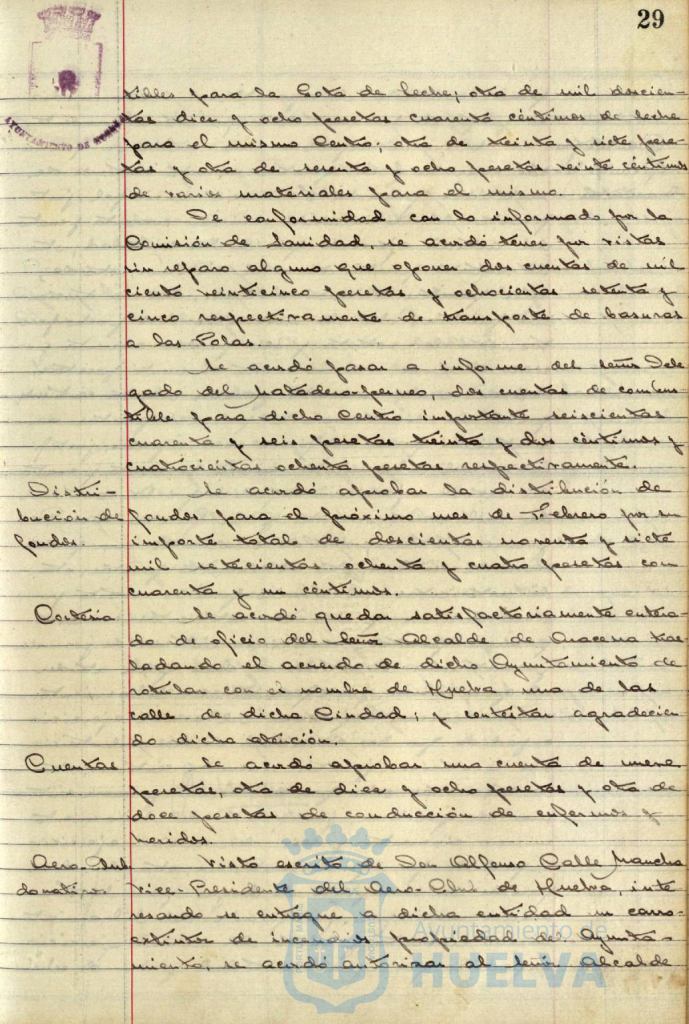 29
AYUNTAMIENTO DE HUELVA
tibles para la Gota de leche; otra de mil doscien-
tas diez y ocho pesetas cuarenta céntimos de leche
para el mismo Centro; otra de treinta y siete pese-
tas y otra de sesenta y ocho pesetas veinte céntimos
de varios materiales para el mismo.
De conformidad con lo informado por la
Comisión de Sanidad, se acordó tener por vistas
sin reparo alguno que oponer dos cuentas de mil
ciento veinticinco pesetas y ochocientas setenta y
cinco respectivamente de transporte de basuras
a las Polas.
Se acordó pasar a informe del señor Dele
gado del Matadero-perneo, dos cuentas de combus
tible para dicho Centro importante seiscientas
cuarenta y seis pesetas treinta y dos céntimos y
cuatrocientas ochenta pesetas respectivamente.
Distri-
bución de
fondos.
Se acordó aprobar la distribución de
fondos para el próximo mes de Febrero por su
importe total de doscientas noventa y siete
mil setecientas ochenta y cuatro pesetas con
cuarenta y un céntimos.
Cortesía
Se acordó quedar satisfactoriamente entera-
do de oficio del señor Alcalde de Aracena tras
ladando el acuerdo de dicho Ayuntamiento de
rotular con el nombre de Huelva una de las
calle de dicha Ciudad; y contestar agradecien
do dicha atención.
Cuentas
Se acordó aprobar una cuenta de nueve
pesetas, otra de diez y ocho pesetas y otra de
doce pesetas de conducción de enfermos y
heridos.
Aero-Club
donativo.
Visto escrito de Don Alfonso Calle Mancha
Vice-Presidente del Aero-Club de Huelva, inte
resando se entregue a dicha entidad un carro-
extintor de incendios propiedad del Ayunta-
miento, se acordó autorizar al señor Alcalde
Ayuntamiento de
HUELVA